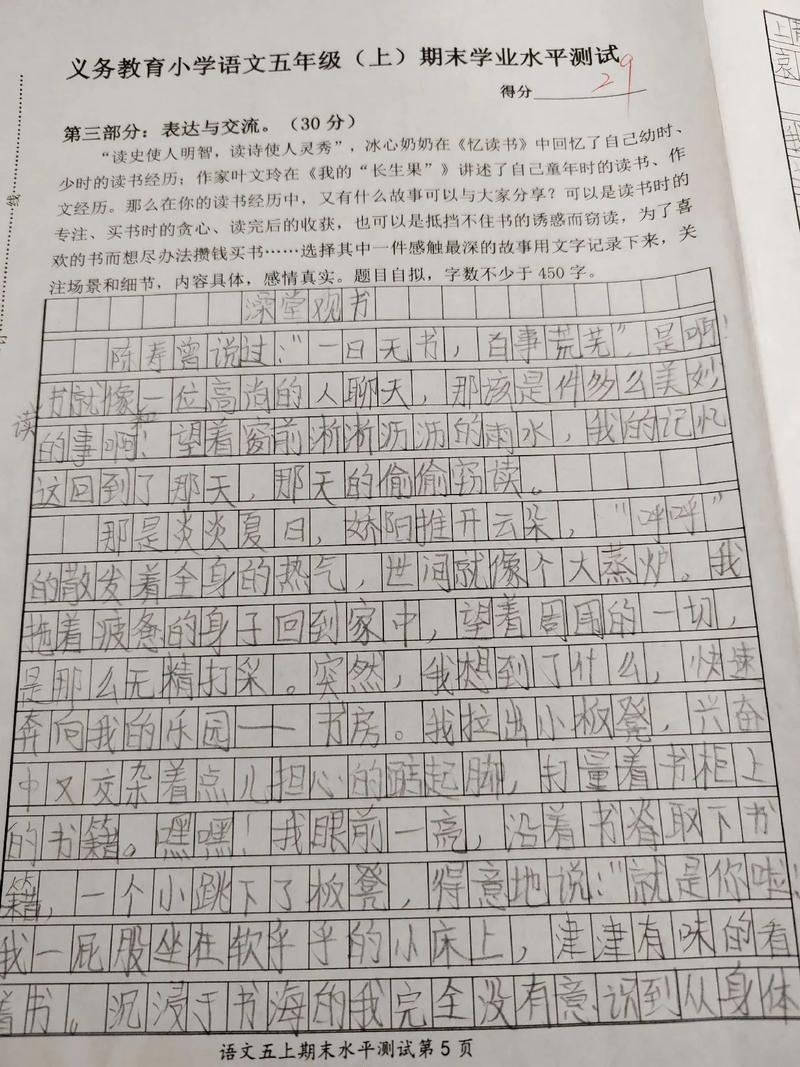 义务教育小学语文五年级（上）期末学业水平测试
得分 29
第三部分：表达与交流。（30分）
“读史使人明智，读诗使人灵秀”，冰心奶奶在《忆读书》中回忆了自己幼时、
少时的读书经历；作家叶文玲在《我的“长生果”》讲述了自己童年时的读书、作
文经历。那么在你的读书经历中，又有什么故事可以与大家分享？可以是读书时的
专注、买书时的贪心、读完后的收获，也可以是抵挡不住书的诱惑而窃读，为了喜
欢的书而想尽办法攒钱买书……选择其中一件感触最深的故事用文字记录下来，关
注场景和细节，内容具体，感情真实。题目自拟，字数不少于450字。
澡堂观书
陈寿曾说过：“一日无书，百事荒芜”，是啊！
读书就像和一位高尚的人聊天，那该是件多么美妙
的事啊！望着窗前淅淅沥沥的雨水，我的记忆
这回到了那天，那天的偷偷窃读。
那是炎炎夏日，娇阳推开云朵，“呼呼”
的散发着全身的热气，世间就像个大蒸炉。我
拖着疲惫的身子回到家中，望着周围的一切，
是那么无精打采。突然，我想到了什么，快速
奔向我的乐园——书房。我拉出小板凳，兴奋
中又交杂着点儿担心的踮起脚，打量着书柜上
的书籍。嘿嘿！我眼前一亮，沿着书脊取下书
籍，一个小跳下了板凳，得意地说：“就是你啦！
我一屁股坐在软乎乎的小床上，津津有味的看
着书。沉浸于书海的我完全没有意识到从身体
语文五上期末水平测试第5页
线